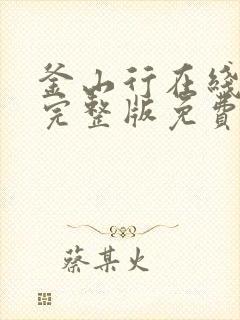 釜山行在线
完整版免費
蔡某火